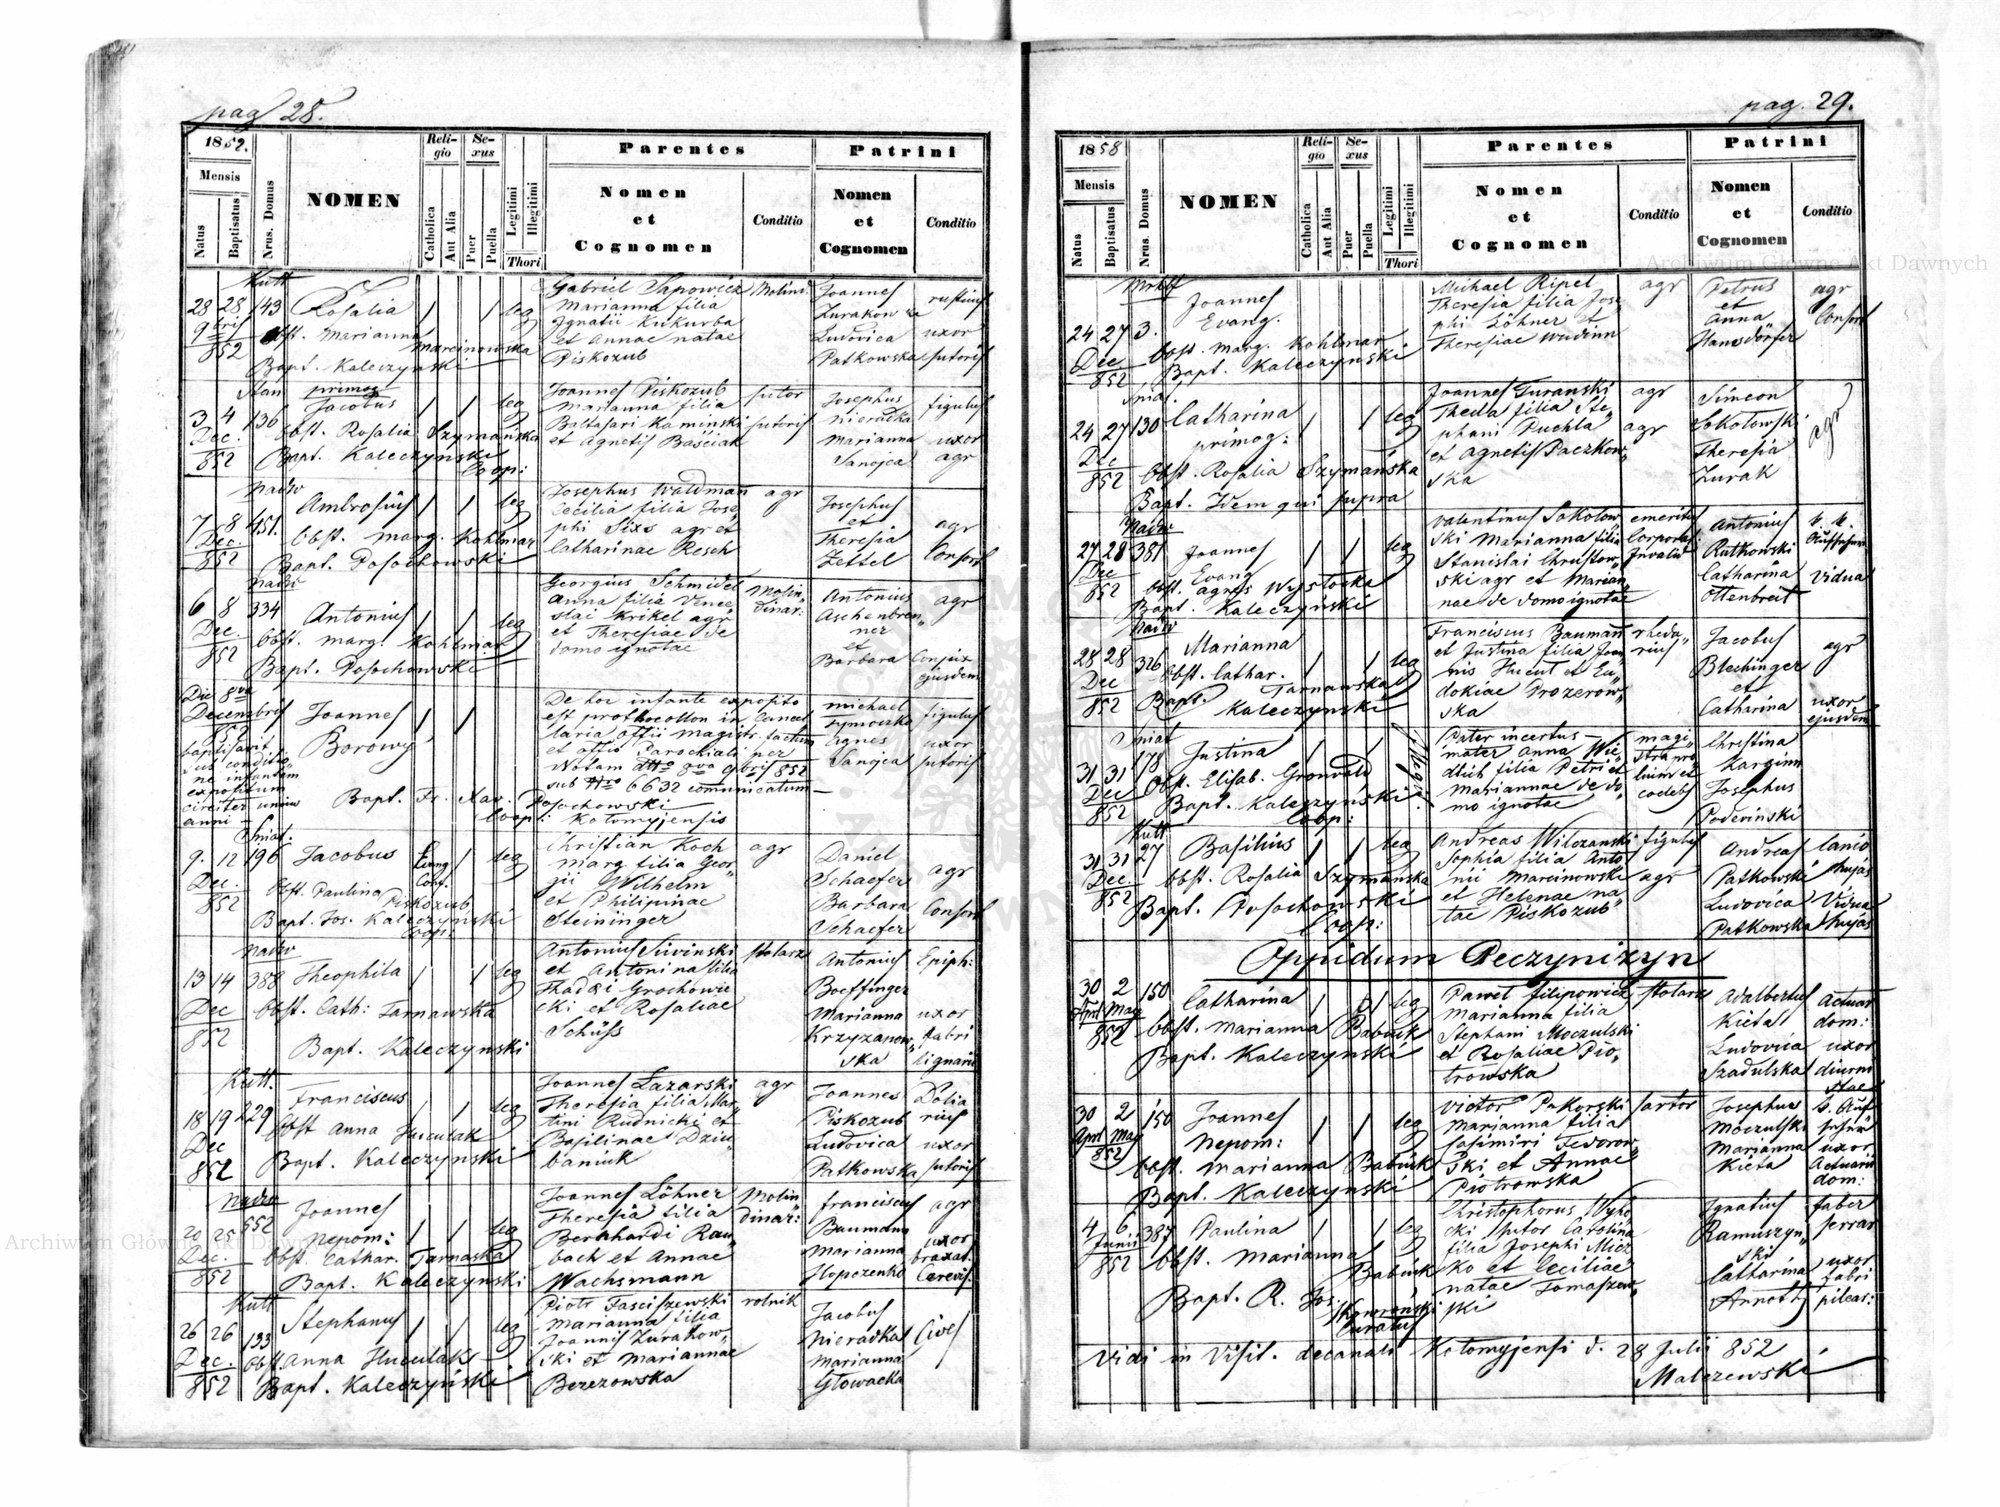 pag 28.
1852.
Mensis
Natus
Baptisatus
Nrus. Domus
NOMEN
Reli-
gio
Catholica
Aut Alia
Se-
xus
Puer
Puella
Legitimi
Illegitimi
Thori
Parentes
Nomen
et
Cognomen
Conditio
Patrini
Nomen
et
Cognomen
Conditio
Kutt
28 28 143 Rosalia 1 1 leg
9bris
852
Obst. Marianna Marcinowska
Bapt. Kaleczynski
Gabriel Sapowicz
Marianna filia
Ignatii Kukurba
et Annae natae
Piskozub
Joannes
Ludovica
Patkowska
rusticus
uxor
sutoris
primog
3 4 136 Jacobus 1 1 leg
Dec.
852
Obst. Rosalia Szymanska
Bapt. Kaleczynski
Coop:
Joannes Piskozub
Marianna filia
Baltasari Kaminski
et Agnetis Baściak
sutor
sutoris
Josephus
Nieradka
Marianna
Sanojca
figulus
uxor
agr
Nadw
7 8 451. Ambrosius 1 1 leg
Dec.
852
Obst. Marg. Kohlmar
Bapt. Posochowski
Josephus Waldmann
Cecilia filia Jose-
phi Sixs agr et
Catharinae Resch
agr
Josephus
et
Theresia
Zettel
agr
Consort
Nadw
6 8 334 Antonius 1 1 leg
Dec.
852
Obst. Marg. Kohlmar
Bapt. Posochowski
Georgius Schmidel
Anna filia Vences-
slai Skrikel agr
et Theresiae de
domo ignotae
Molin-
dinar:
Antonius
Aschenbren-
ner
et
Barbara
agr
Conjux
ejusdem
Die 8va
Decembris
852
baptisavit
sub conditio-
ne infantem
expositum
circiter unius
anni
Joannes 1 1
Borowy
Bapt. Fr. Xav. Posochowski
Coop: Kolomyjensis
De hoc infante exposito
est prothocollon in Cancel-
laria offii magistr. factum
et offio Parochiali per
Notam dtto 8va 9bris 852
sub Nro 6632 comunicatum
Michael
Tymoczka
Agnes
Sanojca
figulus
uxor
sutoris
Sniat.
9. 12 196 Jacobus Evang Conf. 1 leg
Dec.
852
Obst. Paulina Piskozub
Bapt. Jos. Kaleczynski
Coop:
Christian Koch
Marg. filia Geor-
gii Wilhelm
et Philipinae
Steininger
agr
Daniel
Schaefer
Barbara
Schaefer
agr
Consort
Nadw
13 14 388 Theophila 1 1 leg
Dec
852
Obst. Cath: Tarnawska
Bapt. Kaleczynski
Antonius Siwinski
et Antonina filia
Thadaei Grochowie
cki et Rosaliae
Schüss
stolarz
Antonius
Boeffinger
Marianna
Krzyzanow-
ska
Epiph:
uxor
fabri
lignarii
Kutt.
18 19 229 Franciscus 1 1 leg
Dec
852
Obst Anna Huculak
Bapt. Kaleczynski
Joannes Łazarski
Theresia filia Mar-
tini Rudnicki et
Basilinae Dziu-
baniuk
agr
Joannes
Piskozub
Ludovica
Patkowska
Dolia
rius
uxor
sutoris
Nadw
20 25 552 Joannes
nepom: 1 1 leg
Dec.
852
Obst. Cathar. Tarnaska
Bapt. Kaleczynski
Joannes Löhner
Theresia filia
Bernhardi Rau-
bach et Annae
Wachsmann
Molin
dinar:
Franciscus
Baumann
Marianna
Hopczenko
agr
uxor
braxat.
Cerevis.
Kutt
26 26 133 Stephanus 1 1 leg
Dec.
852
Obst Anna Huculak
Bapt. Kaleczyński
Piotr Fasciszewski
Marianna filia
Joannis Zurakow-
ski et Mariannae
Berezowska
rolnik
Jacobus
Nieradka
Marianna
Głowacka
Cives
pag. 29.
1858
Mensis
Natus
Baptisatus
Nrus. Domus
NOMEN
Reli-
gio
Catholica
Aut Alia
Se-
xus
Puer
Puella
Legitimi
Illegitimi
Thori
Parentes
Nomen
et
Cognomen
Conditio
Patrini
Nomen
et
Cognomen
Conditio
24 27 3. Joannes
Evang.
Dec
852
Obst. Marg. Kohlmar
Bapt. Kaleczynski
Michael Ripel
Theresia filia Jose-
phi Löhner et
Theresiae
agr
Petrus
et
Anna
Hansdörfer
agr
Consort
Sniat.
24 27 130 Catharina 1 1 leg
primog:
Dec
852
Obst. Rosalia Szymańska
Bapt. Idem qui supra
Joannes Turanski
Thecla filia Ste-
phani Puchla
et Agnetis Paczkow-
ska
agr
agr
Simeon
Sokołowski
Theresia
Zurak
agr
Nadw
27 28 381 Joannes 1 1 leg
Evang
Dec
852
Obst. Agnes Wysłocka
Bapt. Kaleczynski
Valentinus Sokołow-
ski Marianna filia
Stanislai Chrustow-
ski agr et Marian-
nae de domo ignotae
emeritus
Corporal:
Invalid
Antonius
Rutkowski
Catharina
Ottenbreit
Vidua
Nadw
28 28 326 Marianna 1 1 leg
Dec
852
Obst. Cathar. Tarnawska
Bapt. Kaleczynski
Franciscus Baumann
et Justina filia Joan-
nis Hucul et Eu-
dokiae Prozerow-
ska
rheda-
rius
Jacobus
Blechinger
et
Catharina
agr
uxor
ejusdem
Sniat
31 31 178 Justina 1 1 illeg.
Dec
852
Obst. Elisab. Gronwald
Bapt. Kaleczynski
Coop:
Pater incertus
mater Anna Wie
dlich filia Petri et
Mariannae de do-
mo ignotae
Christina
Karginn
Josephus
Kutt
31 31 27 Basilius 1 1 leg
Dec.
852
Obst. Rosalia Szymańska
Bapt. Posochowski
Coop:
Andreas Wilczanski
Sophia filia Anto-
nii Marcinowski
et Helenae na-
tae Piskozub
figulus
agr
Andreas
Patkowski
Ludovica
Patkowska
lanio
hujas
Vidua
hujas
Oppidum Peczynizyn
30 2 150 Catharina 1 1 leg
Apr Maj
852
Obst. Marianna Babiuk
Bapt. Kaleczynski
Paweł Filipowicz
Marianna filia
Stephani Moczulski
et Rosaliae Pio-
trowska
stolarz
Adalbertus
Kieta
Ludovica
Szadulska
Actuar
dom:
uxor
diurni
stae
30 2 150 Joannes 1 1 leg
Apr Maj
852
Nepom:
Obst. Marianna Babiuk
Bapt. Kaleczynski
Victor Pokorski
Marianna filia
Casimiri Fedorow-
ski et Annae
Piotrowska
sartor
Josephus
Moczulski
Marianna
Kieta
uxor
Actuarii
dom:
4 6 387 Paulina 1 1 leg
Junii
852
Obst. Marianna
Babiuk
Bapt. R. Jos. Skowroński
Curatus
Christophorus Wyso
cki sutor Carolina
filia Josephi Micz
ko et Ceciliae
natae Tomaszew-
ski
Ignatius
Ramuszyn-
ski
Catharina
Annott
faber
ferrar
uxor
fabri
pilear:
Vidi in Visit. decanali Kolomyjensi d. 28 Julii 852
Malczewski
Archiwum Główne Akt Dawnych
Archiwum Główne Akt Dawnych